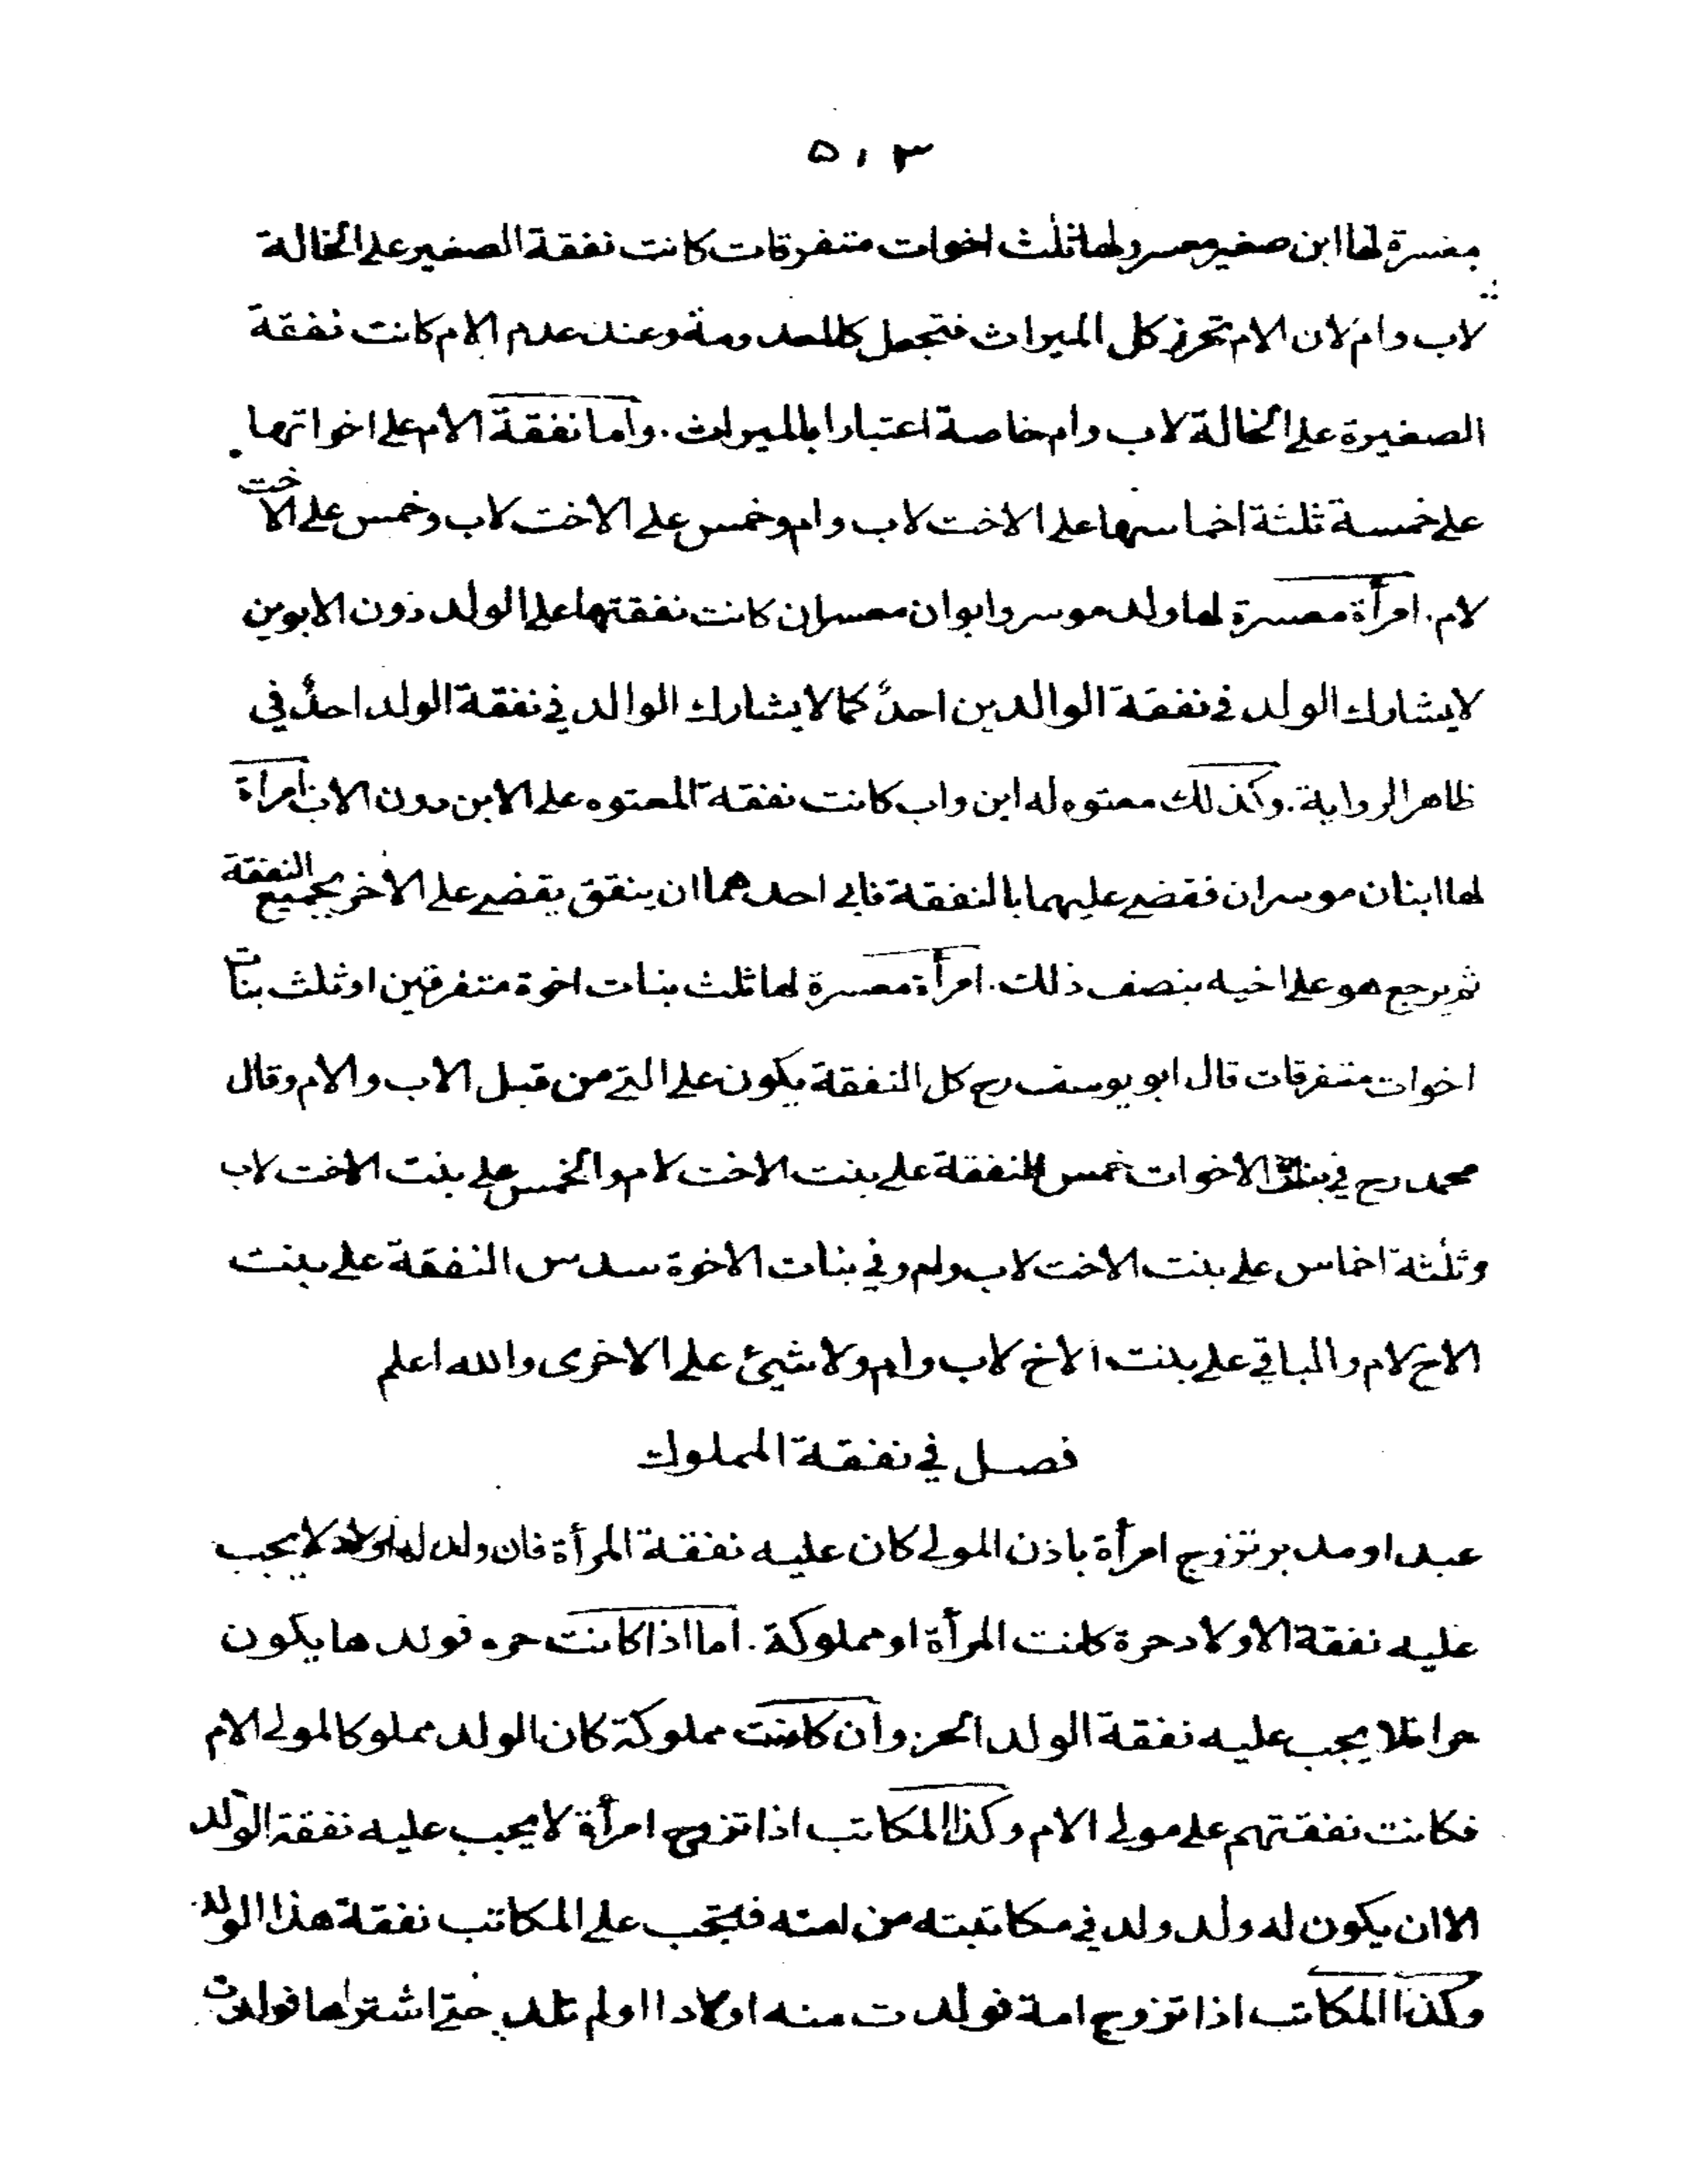 ٥١٣
معسرة لها ابن صغير معسر ولها ثلث اخوات متفرقات كانت نفقة الصغير على الخالة
لاب وام لان الام تحرز كل الميراث فتجعل كالمعدومة وعند عدم الام كانت نفقة
الصغيرة على الخالة لاب وام خاصة اعتبارا بالميراث . واما نفقة الام على اخواتها
على خمسة ثلثة اخماسها على الاخت لاب وام وخمس على الاخت لاب وخمس على الاخت
لام . امرأة معسرة لها ولد موسر وابوان معسران كانت نفقتها على الولد دون الابوين
لا يشارك الولد في نفقة الوالدين احدٌ كما لا يشارك الوالد في نفقة الولد احدٌ في
ظاهر الرواية . وكذلك معتوه له ابن واب كانت نفقة المعتوه على الابن دون الاب امرأة
لها ابنان موسران فقضي عليهما بالنفقة فابى احدهما ان ينفق يقضي على الاخر بجميع النفقة
ثم يرجع هو على اخيه بنصف ذلك . امرأة معسرة لها ثلث بنات اخوة متفرقين او ثلث بنات
اخوات متفرقات قال ابو يوسف رح كل النفقة يكون على التي من قبل الاب والام وقال
محمد رح في بنات الاخوات خمس النفقة على بنت الاخت لام والخمس على بنت الاخت لاب
وثلثة اخماس على بنت الاخت لاب وام وفي بنات الاخوة سدس النفقة على بنت
الاخ لام والباقي على بنت الاخ لاب وام ولا شيئ على الاخرى والله اعلم
فصل في نفقة المملوك
عبد او مدبر تزوج امرأة باذن المولى كان عليه نفقة المرأة فان ولد لها اولاد لا يجب
عليه نفقة الاولاد حرة كانت المرأة او مملوكة . اما اذا كانت حره فولدها يكون
حرا فلا يجب عليه نفقة الولد الحر وان كانت مملوكة كان الولد مملوكا لمولى الام
فكانت نفقتهم على مولى الام وكذا المكاتب اذا تزوج امرأة لا يجب عليه نفقة الولد
الا ان يكون له ولد ولد في مكاتبته من امته فيجب على المكاتب نفقة هذا الولد
وكذا المكاتب اذا تزوج امة فولدت منه اولادا او لم تلد حتى اشتراها فولدت